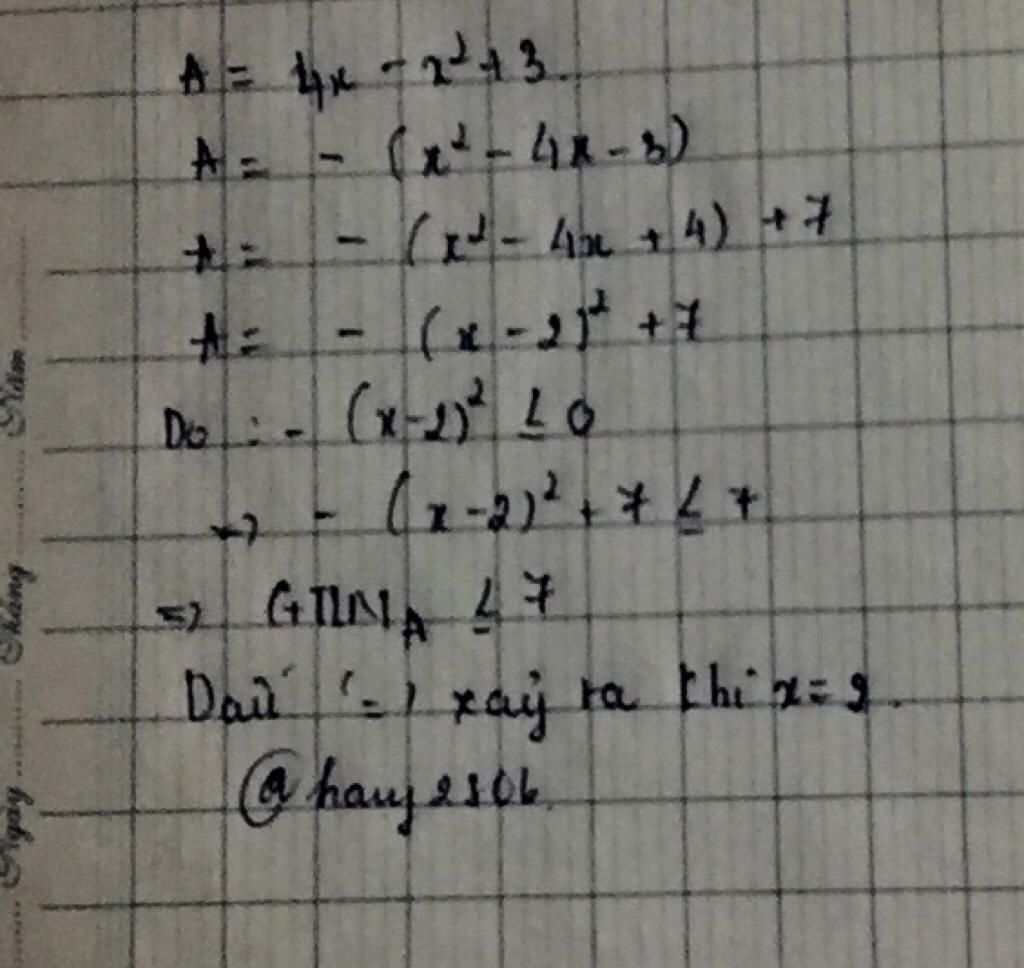 A = 4x - x² + 3.
A = - (x² - 4x - 3)
A = - (x² - 4x + 4) + 7
A = - (x - 2)² + 7
Do : - (x-2)² ≤ 0
=> - (x-2)² + 7 ≤ 7
=> GTLN_A ≤ 7
Dấu '=' xảy ra khi x = 2.
@hauy2506
Ngày Tháng Năm